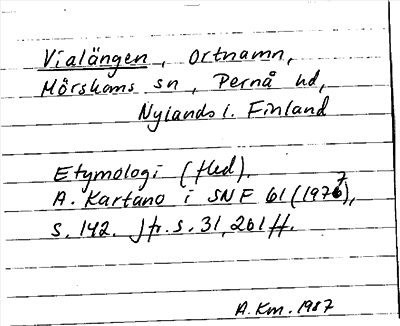 Vialängen, Ortnamn,
Mörskoms sn, Pernå hd,
Nylands l. Finland
Etymologi (fled).
A. Kartano i SNF 61 (1977),
s. 142. Jfr. s. 31, 261 ff.
A. Km. 1987